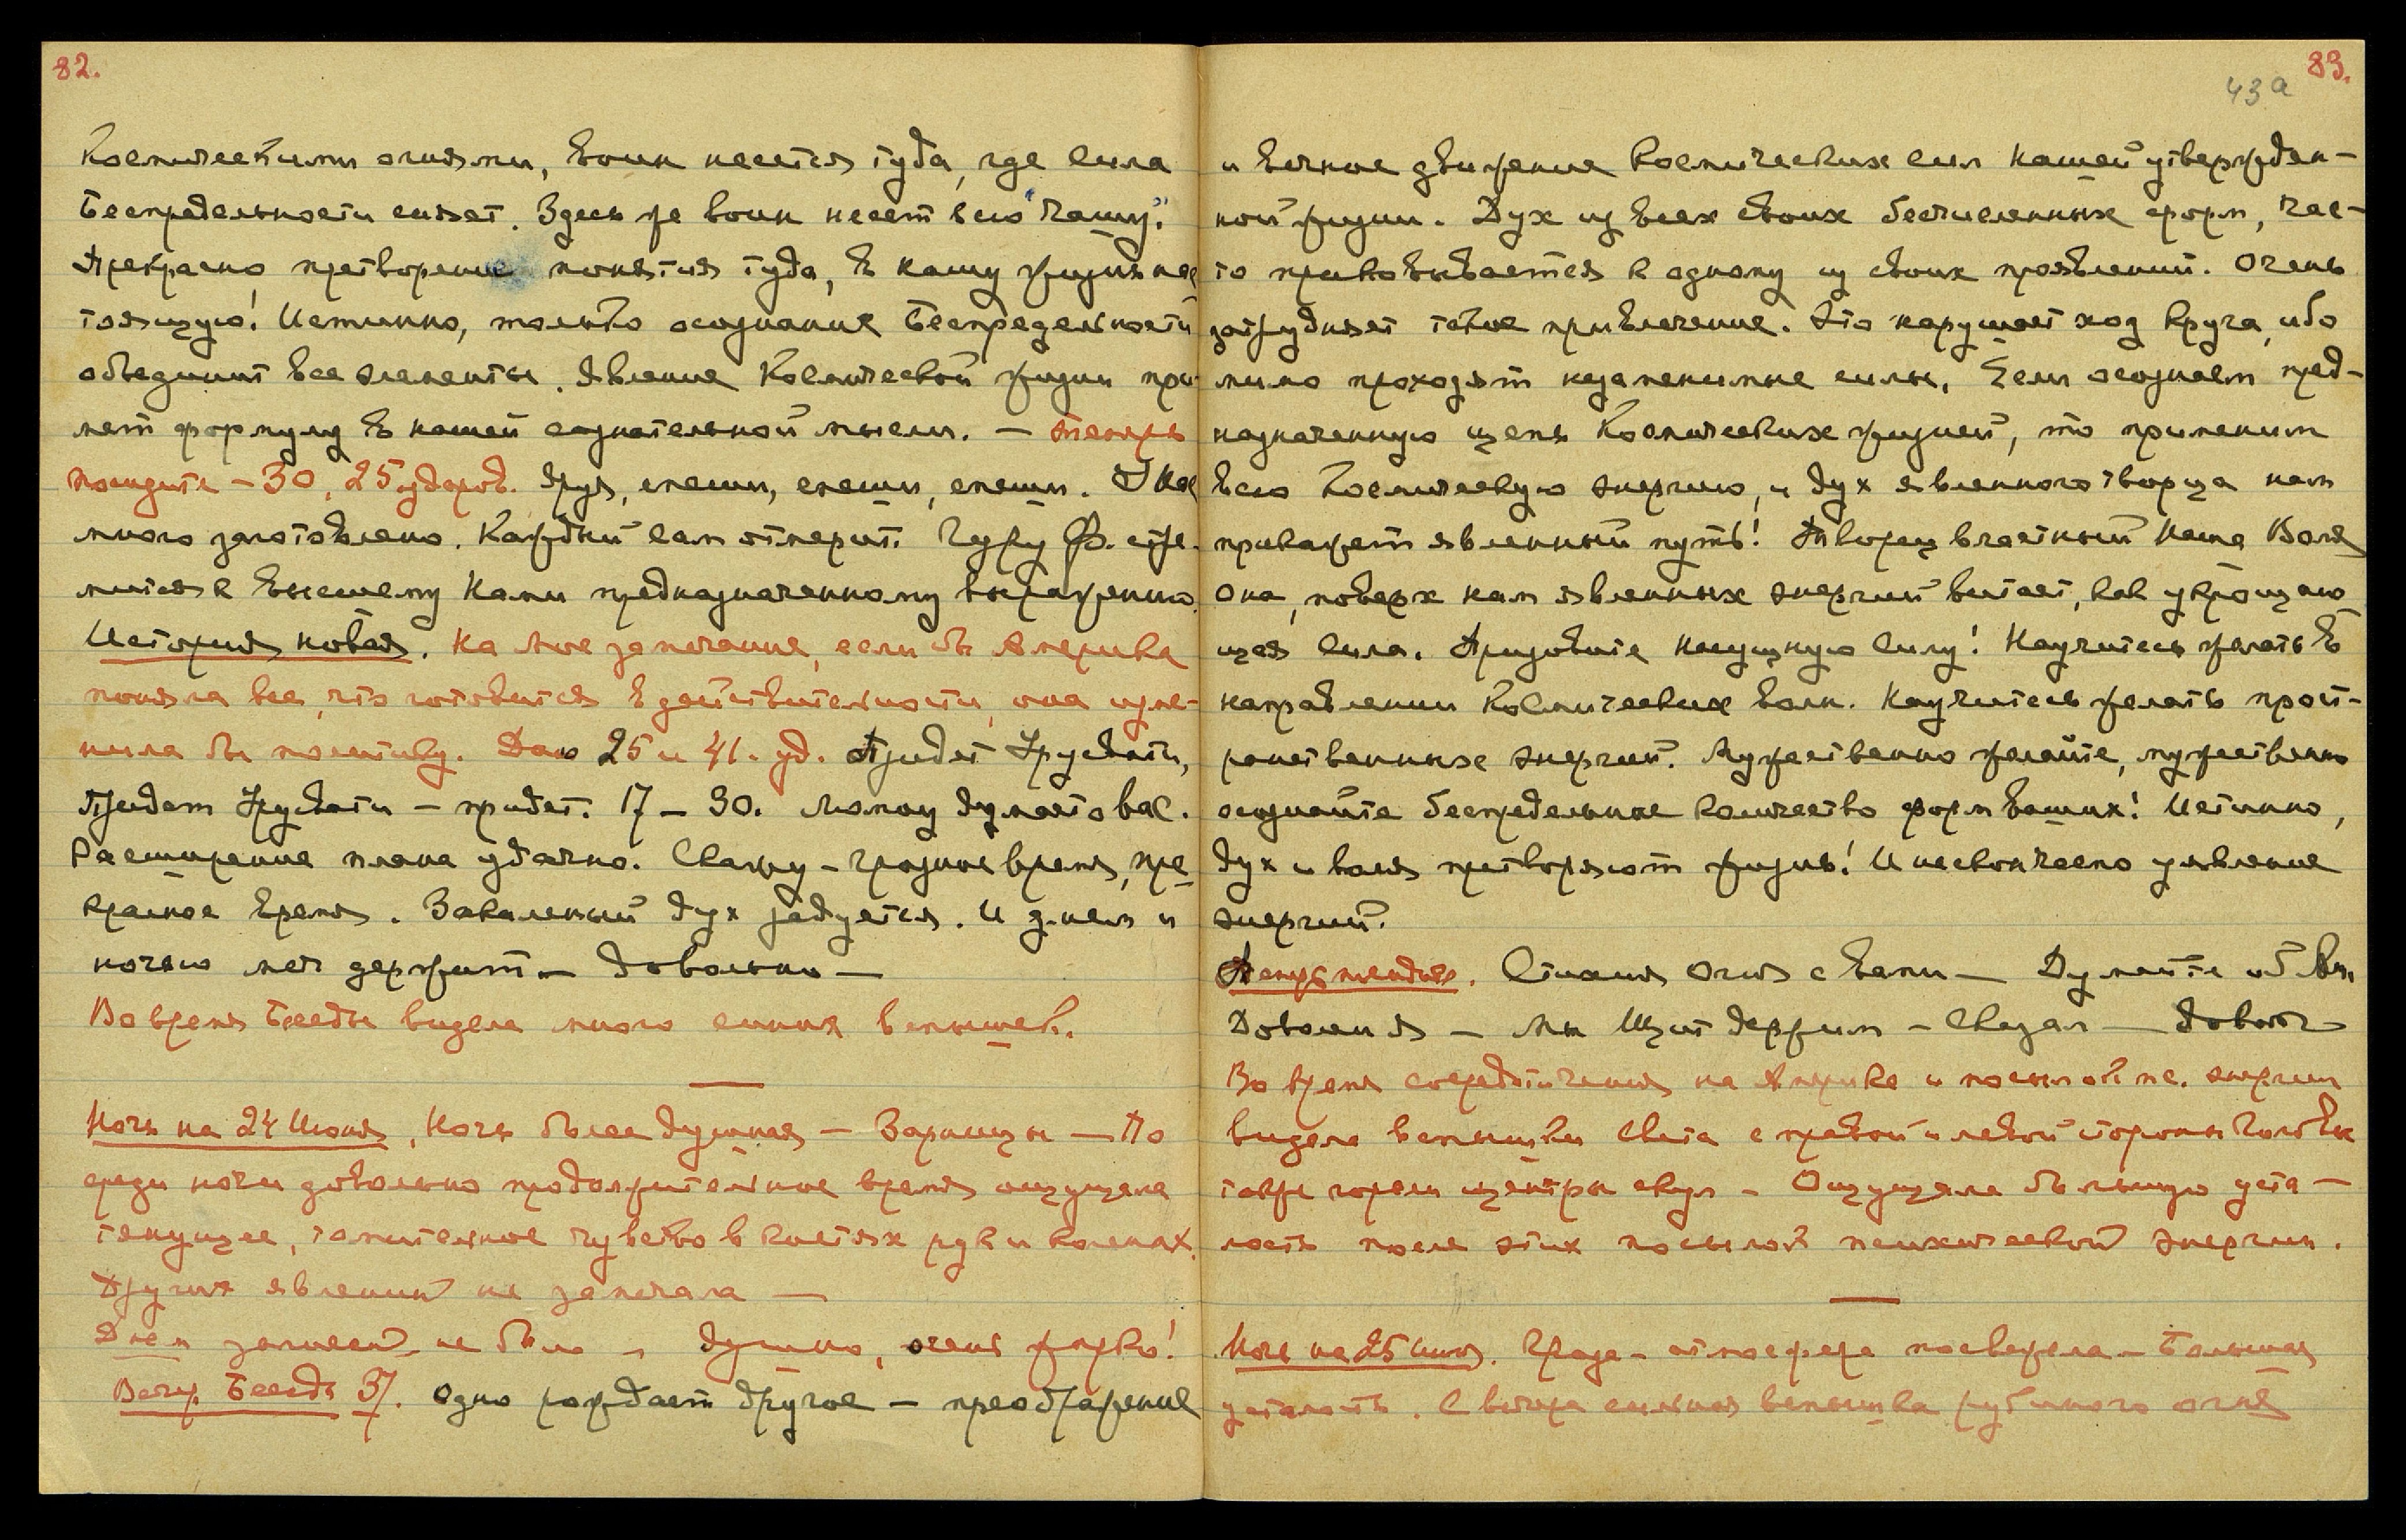 82.
Космическими огнями, воин несется туда, где сила
Беспредельности сияет. Здесь же воин несет всю "Чашу".
Прекрасно претворение понятия туда, в нашу жизнь нас-
тоящую! Истинно, только осознание Беспредельности
объединит все элементы. Явление Космической жизни при-
мет формулу в нашей сознательной мысли. — Теперь
посидите – 30, 25 ударов. Друя, спеши, спеши, спеши. У нас
много заготовлено. Каждый сам отмерит. Гуру Ф. стре-
мится к высшему Нами предназначенному выражению.
История новая. На мое замечание, если бы Америка
поняла все, что готовится в действительности, она изме-
нила бы политику. Даю 25 и 41. уд. Придет Урусвати,
Придет Урусвати – придет. 17 – 30. думает о вас.
Расширение плана удачно. Скажу – грозное время, пре-
красное время. Закаленный дух радуется. И днем и
ночью меч держит — Довольно —
Во время Беседы видела много синих вспышек.
Ночь на 24 Июня, Ночь более душная – Зарницы — По
среди ночи довольно продолжительное время ощущала
тянущее, томительное чувство в кистях рук и коленях.
Других явлений не замечала —
Днем записей не было – душно, очень жарко!
Вечер. Беседа 37. Одно рождает другое – преображение
83.
43а
и вечное движение Космических сил нашей утвержден-
ной жизни. Дух из всех своих бесчисленных форм, час-
то приковывается к одному из своих проявлений. Очень
затрудняет такое привлечение. Это нарушает ход круга, ибо
мимо проходят незаменимые силы. Если осознаем пред-
назначенную цепь Космических жизней, то применим
всю Космическую энергию, и дух явленного творца нам
прикажет явленный путь! Творец властный Наша Воля
Она, поверх нам явленных энергий витает, как укрощаю-
щая сила. Призовите насущную Силу! Научитесь желать в
направлении Космических волн. Научитесь желать прост-
ранственных энергий. Мужественно желайте, мужественно
осознайте беспредельное количество форм ваших! Истинно,
дух и воля претворяют жизнь! И нескончаемо уявление
энергий.
Стихия Огня с вами — Думайте об Ам.
— Мы Щит держим – Сказал — довол
Во время сосредоточения на Америке и посылок пс. энергии
видела вспышки света с правой и левой стороны головы
также горели центры скул – Ощущала большую уста-
лость после этих посылок психической энергии.
Ночь на 25 Июня. Гроза – атмосфера посвежела – Большая
усталость. С вечера сильная вспышка рубинового огня